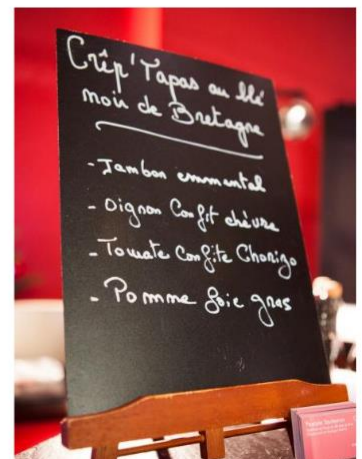 Crêp'Tapas au blé
noir de Bretagne
- Jambon emmental
- Oignon Confit chèvre
- Tomate Confite Chorizo
- Pomme foie gras